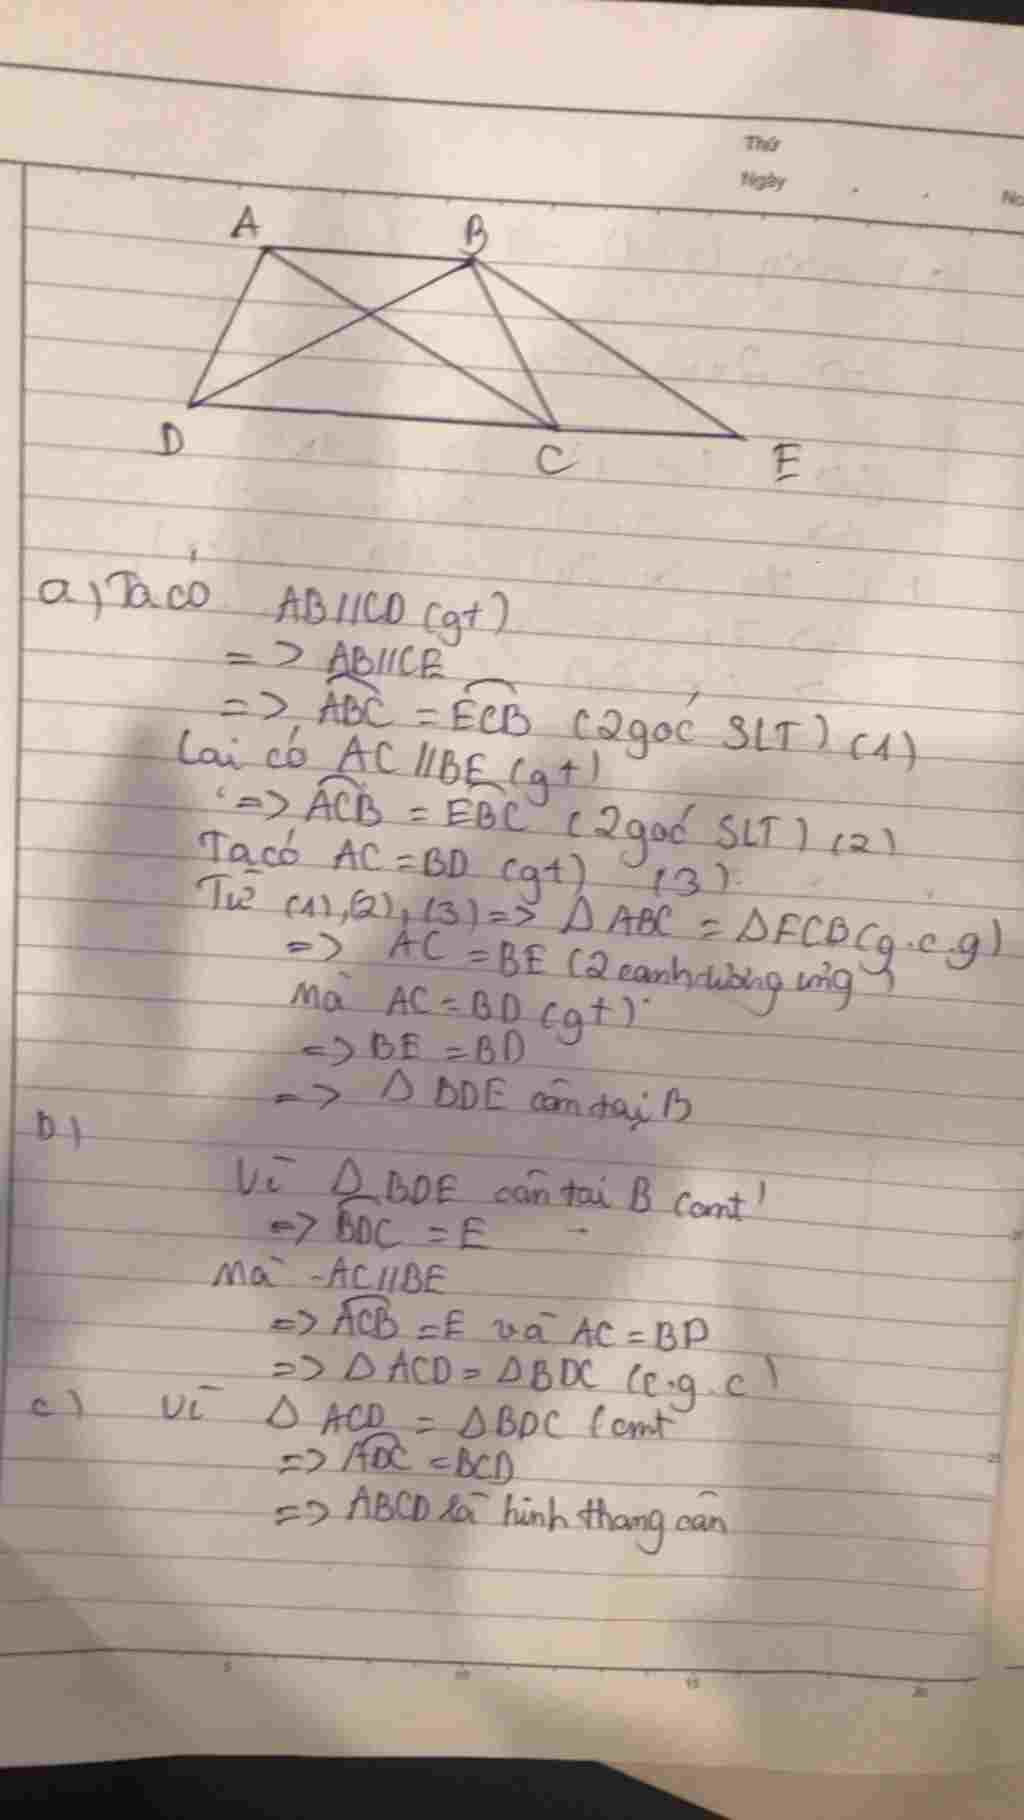 Thứ
Ngày
No
A
B
D
C
E
a) Ta có AB//CD (gt)
=> AB//CE
=> ABC = ECB (2 góc SLT) (1)
Lại có AC//BE (gt)
=> ACB = EBC (2 góc SLT) (2)
Ta có AC = BD (gt) (3)
Từ (1), (2), (3) => Δ ABC = Δ ECB (g.c.g)
=> AC = BE (2 cạnh tương ứng)
Mà AC = BD (gt)
=> BE = BD
=> Δ BDE cân tại B
b)
Vì Δ BDE cân tại B (cmt)
=> BDC = E
Mà AC//BE
=> ACB = E và AC = BD
=> Δ ACD = Δ BDC (c.g.c)
c) Vì Δ ACD = Δ BDC (cmt
=> ADC = BCD
=> ABCD là hình thang cân
5 10 15 20